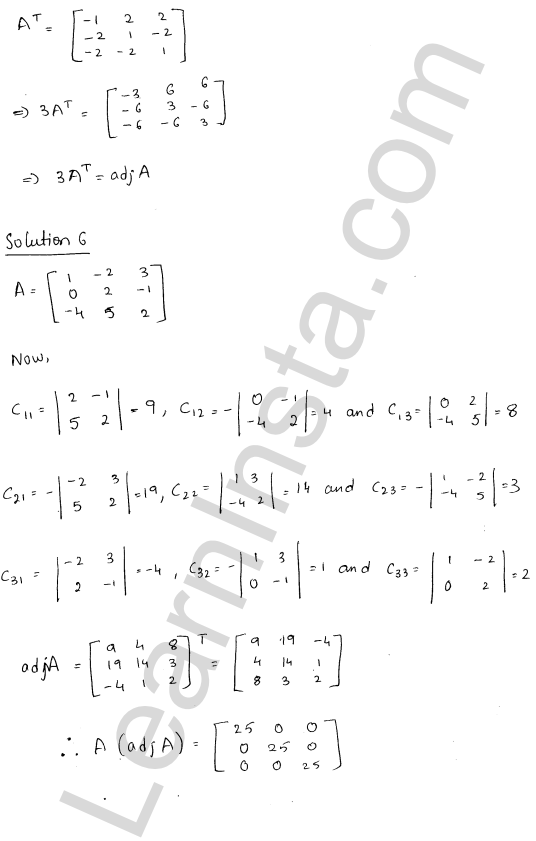 Aᵀ = [ -1 2 2 ; -2 1 -2 ; -2 -2 1 ]
=> 3Aᵀ = [ -3 6 6 ; -6 3 -6 ; -6 -6 3 ]
=> 3Aᵀ = adj A
Solution 6
A = [ 1 -2 3 ; 0 2 -1 ; -4 5 2 ]
Now,
C₁₁ = | 2 -1 ; 5 2 | = 9, C₁₂ = - | 0 -1 ; -4 2 | = 4 and C₁₃ = | 0 2 ; -4 5 | = 8
C₂₁ = - | -2 3 ; 5 2 | = 19, C₂₂ = | 1 3 ; -4 2 | = 14 and C₂₃ = - | 1 -2 ; -4 5 | = 3
C₃₁ = | -2 3 ; 2 -1 | = -4, C₃₂ = - | 1 3 ; 0 -1 | = 1 and C₃₃ = | 1 -2 ; 0 2 | = 2
adjA = [ 9 4 8 ; 19 14 3 ; -4 1 2 ]ᵀ = [ 9 19 -4 ; 4 14 1 ; 8 3 2 ]
∴ A (adj A) = [ 25 0 0 ; 0 25 0 ; 0 0 25 ]
LearnInsta.com